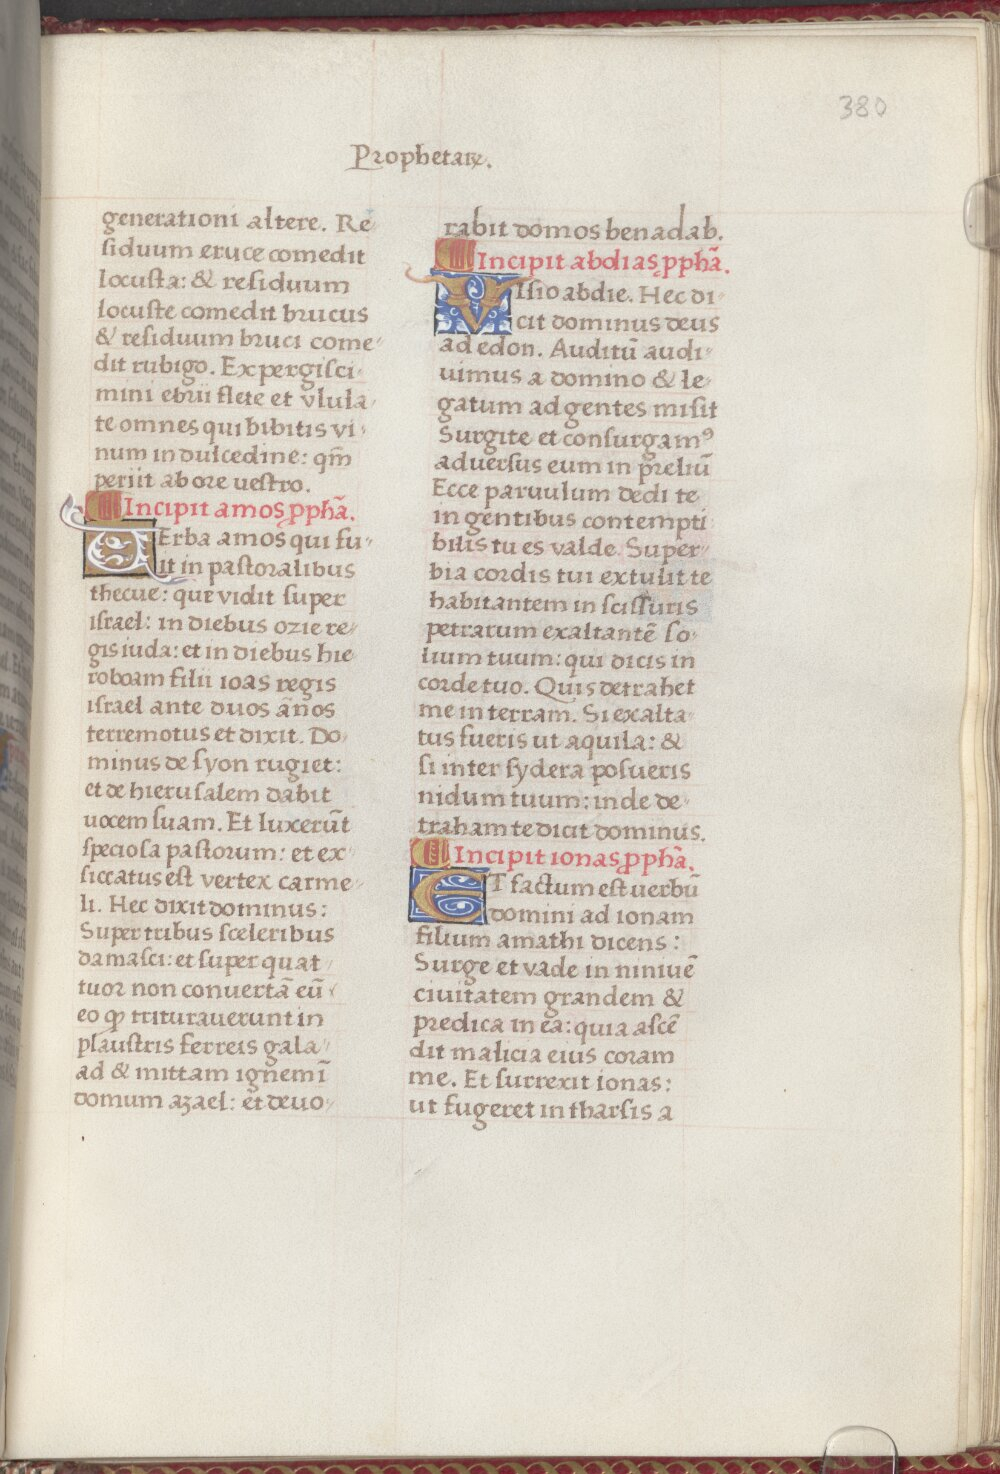 380
Prophetaꝝ.
generationi altere. Re-
siduum eruce comedit
locusta: & residuum
locuste comedit brucus
& residuum bruci come-
dit rubigo. Expergisci-
mini ebrii flete et vlula-
te omnes qui bibitis vi-
num in dulcedine: qm̄
periit ab ore uestro.
Incipit amos ꝓphā.
VErba amos qui fu-
it in pastoralibus
thecue: que vidit super
israel: in diebus ozie re-
gis iuda: et in diebus hie
roboam filii ioas regis
israel ante duos an̄os
terremotus et dixit. Do-
minus de syon rugiet:
et de hierusalem dabit
uocem suam. Et luxerūt
speciosa pastorum: et ex-
siccatus est vertex carme-
li. Hec dixit dominus:
Super tribus sceleribus
damasci: et super quat-
tuor non conuertā eū
eo ꝙ triturauerunt in
plaustris ferreis gala-
ad & mittam ignem ī
domum azael: et deuo-
rabit domos benadab.
Incipit abdias ꝓphā.
VIsio abdie. Hec di-
cit dominus deus
ad edon. Auditū audi-
uimus a domino & le-
gatum ad gentes misit
Surgite et consurgamꝰ
aduersus eum in preliū
Ecce paruulum dedi te
in gentibus contempti
bilis tu es valde. Super-
bia cordis tui extulit te
habitantem in scissuris
petrarum exaltantē so-
lium tuum: qui dicis in
corde tuo. Quis detrahet
me in terram. Si exalta-
tus fueris ut aquila: &
si inter sydera posueris
nidum tuum: inde de-
traham te dicit dominus.
Incipit ionas ꝓphā.
ET factum est uerbū
domini ad ionam
filium amathi dicens:
Surge et vade in niniuē
ciuitatem grandem &
predica in ea: quia ascē
dit malicia eius coram
me. Et surrexit ionas:
ut fugeret in tharsis a